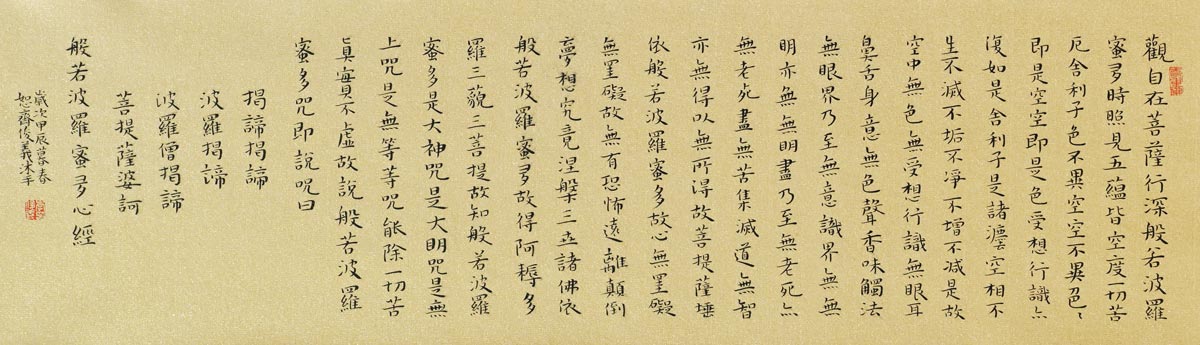 觀自在菩薩行深般若波羅
蜜多時照見五蘊皆空度一切苦
厄舍利子色不異空空不異色色
即是空空即是色受想行識亦
復如是舍利子是諸法空相不
生不滅不垢不淨不增不減是故
空中無色無受想行識無眼耳
鼻舌身意無色聲香味觸法
無眼界乃至無意識界無無
明亦無無明盡乃至無老死亦
無老死盡無苦集滅道無智
亦無得以無所得故菩提薩埵
依般若波羅蜜多故心無罣礙
無罣礙故無有恐怖遠離顛倒
夢想究竟涅槃三世諸佛依
般若波羅蜜多故得阿耨多
羅三藐三菩提故知般若波羅
蜜多是大神咒是大明咒是無
上咒是無等等咒能除一切苦
真實不虛故說般若波羅
蜜多咒即說咒曰
揭諦揭諦
波羅揭諦
波羅僧揭諦
菩提薩婆訶
般若波羅蜜多心經
歲次甲辰暮春
恕齋俊義沐手